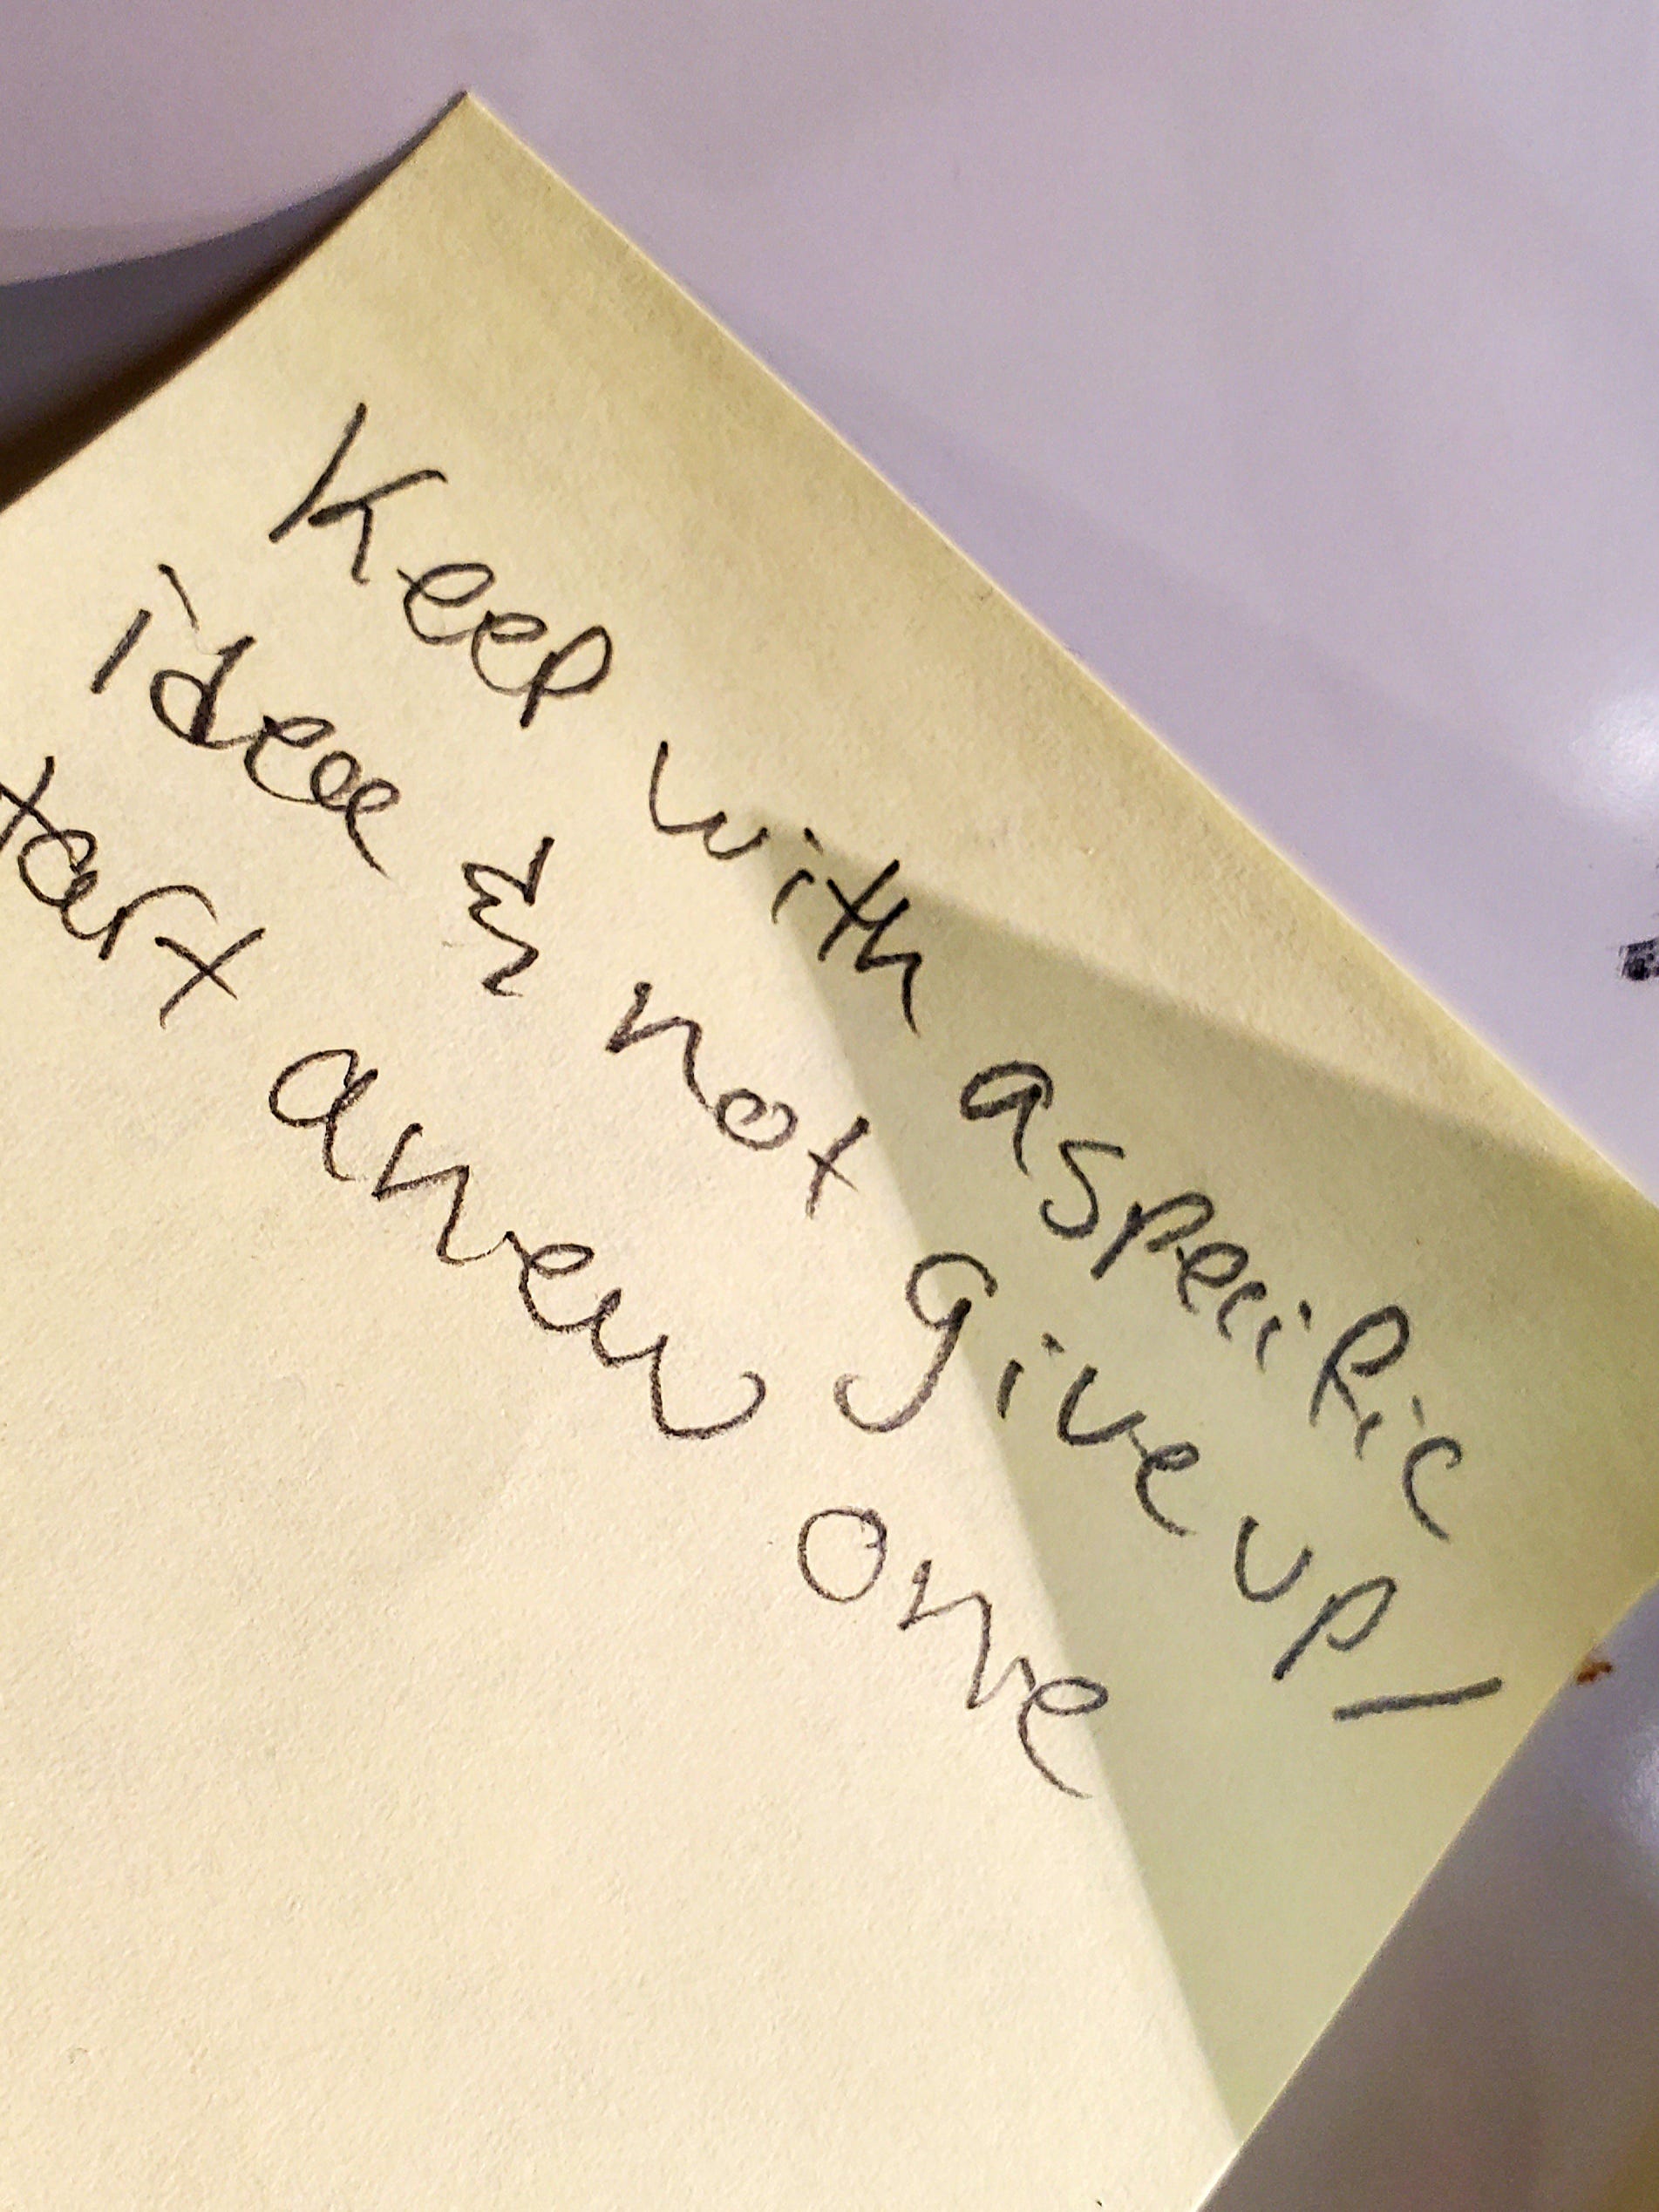 Keep with a specific
idea & not give up/
tart a new one